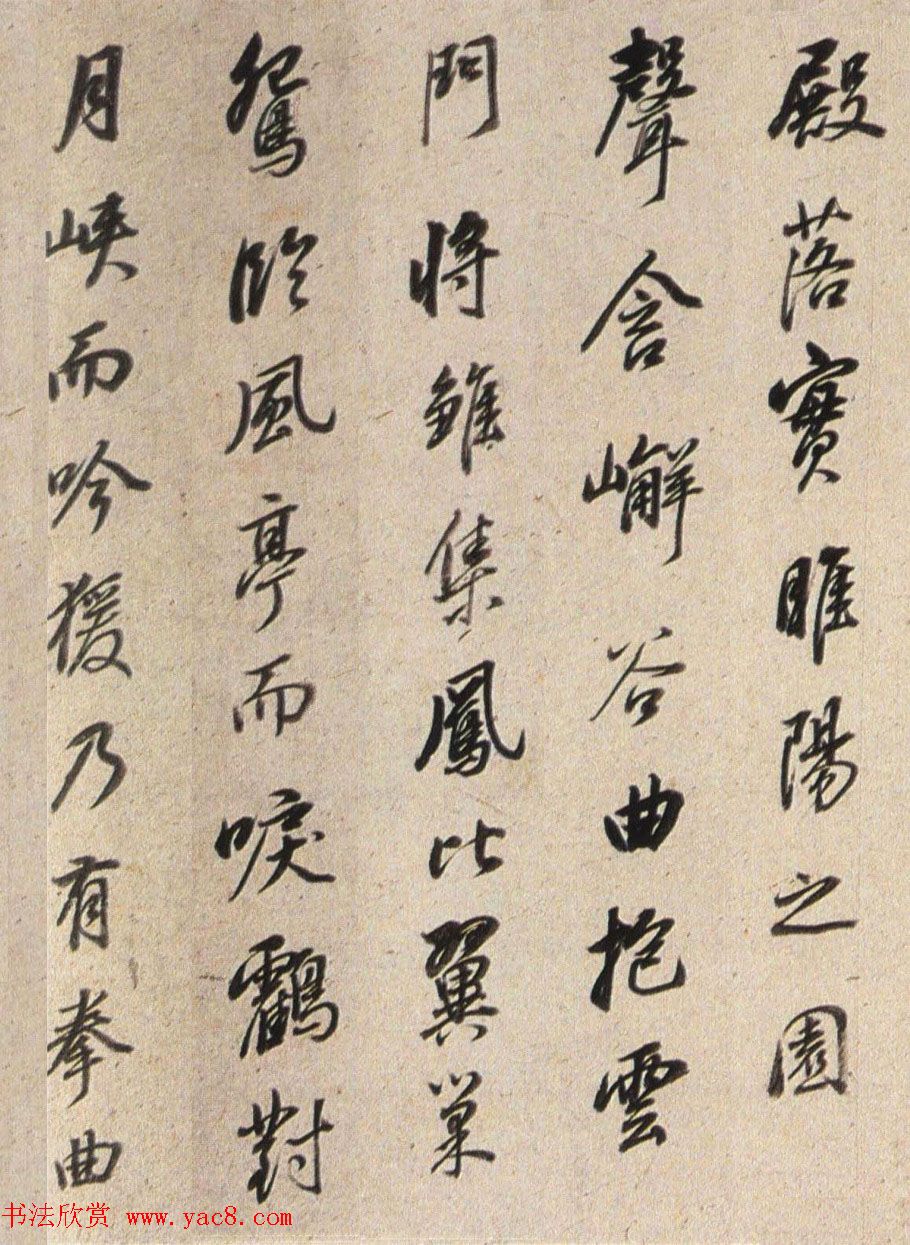 殿落實睢陽之園
聲含嶰谷曲抱雲
門將雛集鳳比翼巢
鴛臨風亭而唳鸖對
月峽而吟猨乃有拳曲
书法欣赏 www.yac8.com